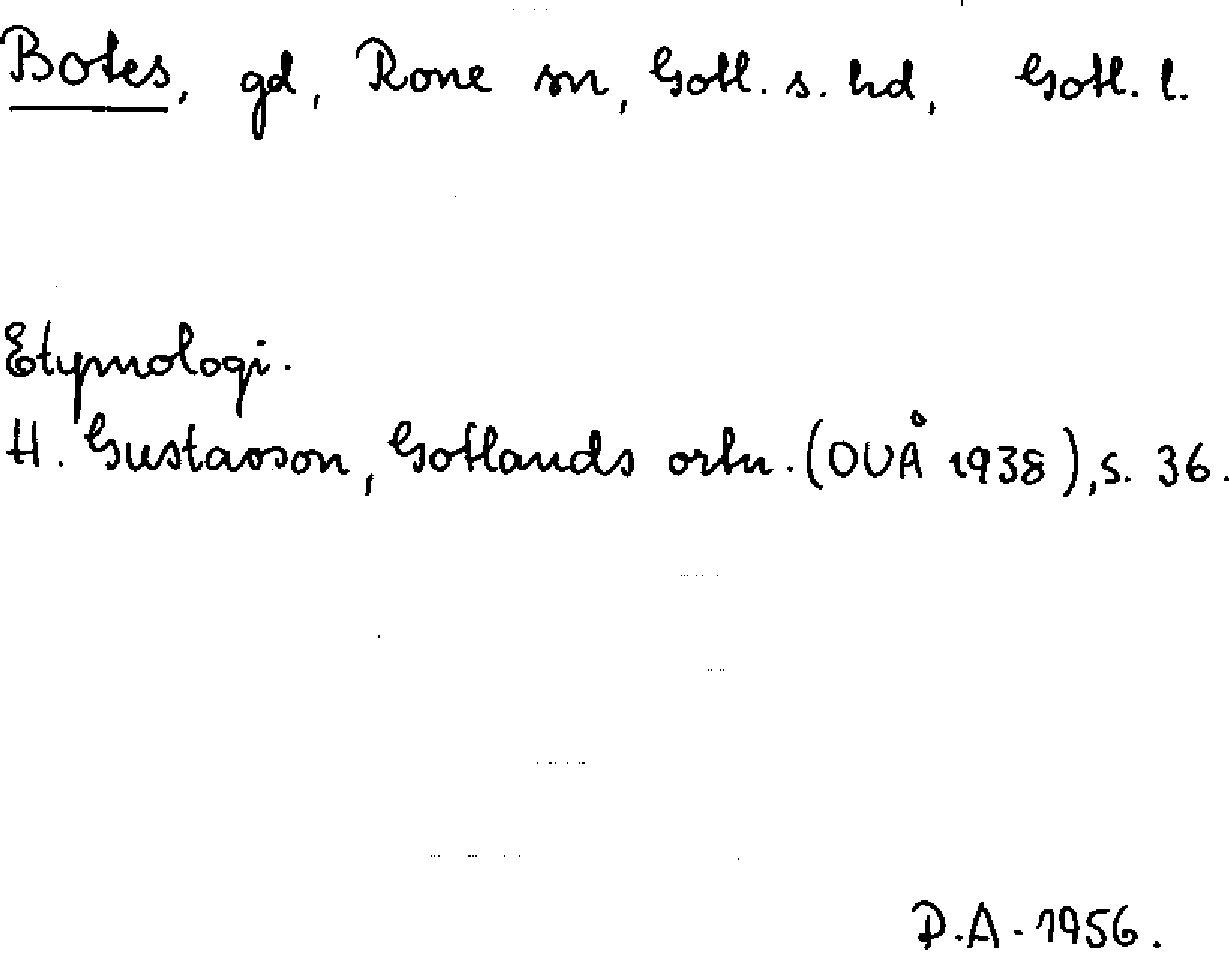 Botes, gd, Rone sn, Gotl. s. hd, Gotl. l.
Etymologi.
H. Gustavson, Gotlands ortn. (OUÅ 1938), s. 36.
P.A. 1956.